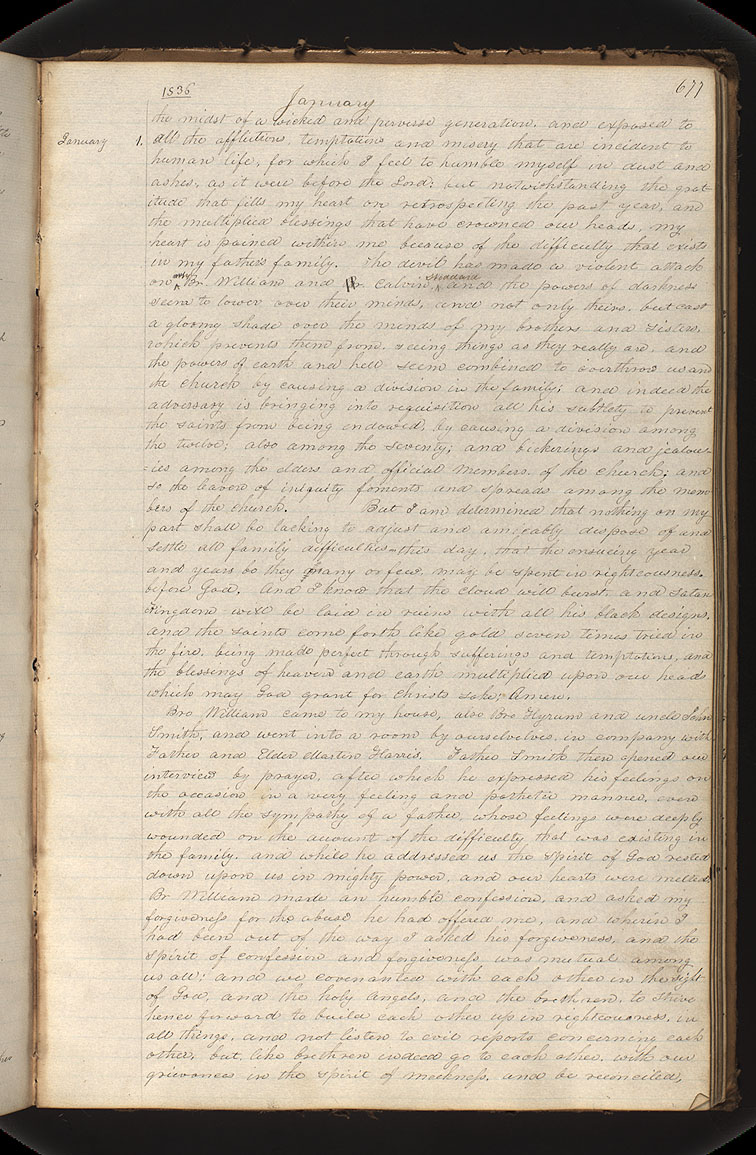 1836
677
January
the midst of a wicked and perverse generation, and exposed to
January 1. all the afflictions, temptations and misery that are incident to
human life, for which I feel to humble myself in dust and
ashes, as it were before the Lord; but notwithstanding the grat-
itude that fills my heart on retrospecting the past year, and
the multiplied blessings that have crowned our heads, my
heart is pained within me because of the difficulty that exists
in my father's family. The devil has made a violent attack
on my Br. William and Br Calvin Stoddard, and the powers of darkness
seem to lower over their minds, and not only theirs, but cast
a gloomy shade over the minds of my brothers and sisters,
which prevents them from seeing things as they really are, and
the powers of earth and hell seem combined to overthrow us and
the church by causing a division in the family; and indeed the
adversary is bringing into requisition all his subtlety to prevent
the saints from being endowed, by causing a division among
the twelve; also among the seventy; and bickerings and jealous-
=ies among the elders and official members of the church; and
so the leaven of iniquity foments and spreads among the mem
bers of the church. But I am determined that nothing on my
part shall be lacking to adjust and amicably dispose of and
settle all family difficulties this day, that the ensueing year
and years be they many or few, may be spent in righteousness
before God. And I know that the cloud will burst, and Satans
kingdom will be laid in ruins with all his black designs,
and the saints come forth like gold seven times tried in
the fire, being made perfect through sufferings and temptations, and
the blessings of heaven and earth multiplied upon our heads
which may God grant for Christs sake. Amen.
Bro William came to my house, also Bro Hyrum and uncle John
Smith, and went into a room by ourselves, in company with
Father and Elder Martin Harris. Father Smith then opened our
interview by prayer, after which he expressed his feelings on
the occasion in a very feeling and pathetic manner, even
with all the sympathy of a father, whose feelings were deeply
wounded on the account of the difficulty that was existing in
the family. and while he addressed us the spirit of God rested
down upon us in mighty power, and our hearts were melted.
Br William made an humble confession, and asked my
forgiveness for the abuse he had offered me, and wherein I
had been out of the way I asked his forgiveness, and the
spirit of confession and forgiveness was mutual among
us all; and we covenanted with each other in the sight
of God, and the holy angels, and the brethren, to strive
hence forward to build each other up in righteousness, in
all things, and not listen to evil reports concerning each
other, but, like brethren indeed go to each other, with our
grievances in the spirit of meekness, and be reconciled,